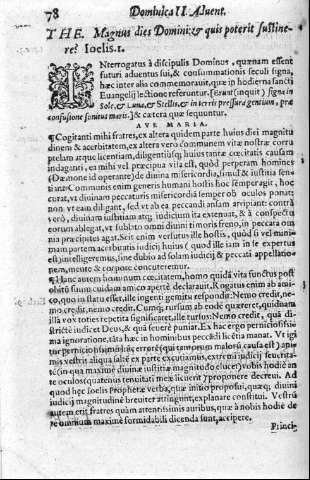 78 Dominica II. Aduent.
THE. Magnus dies Domini: & quis poterit sustine-
re? Ioelis. 1.
INterrogatus à discipulis Dominus, quænam essent
futuri aduentus sui, & consummationis seculi signa,
hæc inter alia commemorauit, quæ in hodierna sancti
Euangelij lectione referuntur. [Erunt (inquit) signa in
Sole, & Luna, & Stellis, & in terris pressura gentium, præ
confusione sonitus maris.] & cætera quæ sequuntur.
AVE MARIA.
¶Cogitanti mihi fratres, ex altera quidem parte huius diei magnitu
dinem & acerbitatem, ex altera vero communem vitæ nostræ corru
ptelam atque licentiam, diligentiusq; huius tantæ cæcitatis causam
indaganti, ea mihi vel præcipua visa est, quòd perperam homines
(Dæmone id operante) de diuina misericordia, simul & iustitia sen
tiant. Communis enim generis humani hostis hoc semper agit, hoc
curat, vt diuinam peccatoris misericordia semper ob oculos ponat:
non vt eam diligant, sed vt ab ea peccandi ansam arripiant: contrà
verò, diuinam iustitiam atq; iudicium ita extenuat, & à conspectu
eorum ablegat, vt subito omni diuini timoris freno, in peccata om
nia præcipites agat. Scit enim versutus ille hostis, quòd si vel mini-
mam partem acerbitatis iudicij huius (quod ille iam in se expertus
est) intelligeremus, sine dubio ad solam iudicij & peccati appellatio-
nem, mente & corpore concuteremur.
¶Hanc autem hominum cæcitatem, homo quidã vita functus post
obitũ suum cuidam amico apertè declarauit. Rogatus enim ab amico,
quo in statu esset, ille ingenti gemitu respondit: Nemo credit, ne-
mo credit, nemo credit. Cumq; rursum ab eodẽ quæreret, quidnam
illa vox toties repetita significaret, ille rursus: Nemo credit, quã di-
strictè iudicet Deus, & quã seuerè puniat. Ex hac ergo perniciosissi-
ma ignoratione, tãta hæc in hominibus peccãdi licẽtia manat. Vt igi
tur perniciosissimũ errorẽ (qui tantorum malorũ causa est) animis
vestris aliqua saltẽ ex parte excutiamus, extremi iudicij seueritã-
tẽ (in qua maximè diuinæ iustitiæ magnitudo elucet) vobis hodiè an
te oculos (quatenus tenuitati meæ licuerit) proponere decreui. Ad
quod hæc Ioelis Prophetæ verba, quæ initio proposui, quæq; diuini
iudicij magnitudinẽ breuiter attingunt, explanare constitui. Vestrũ
autem erit fratres quàm attentissimis auribus, quæ à nobis hodie de
re omnium maximè formidabili dicenda sunt, accipere.
Princi-